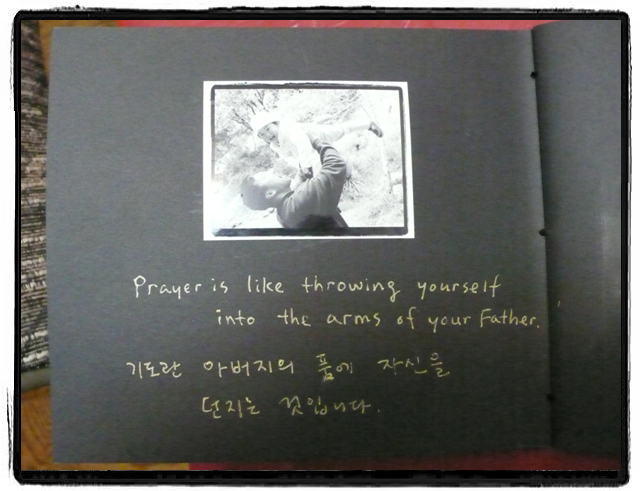 Prayer is like throwing yourself
into the arms of your Father.
기도란 아버지의 품에 자신을
던지는 것입니다.